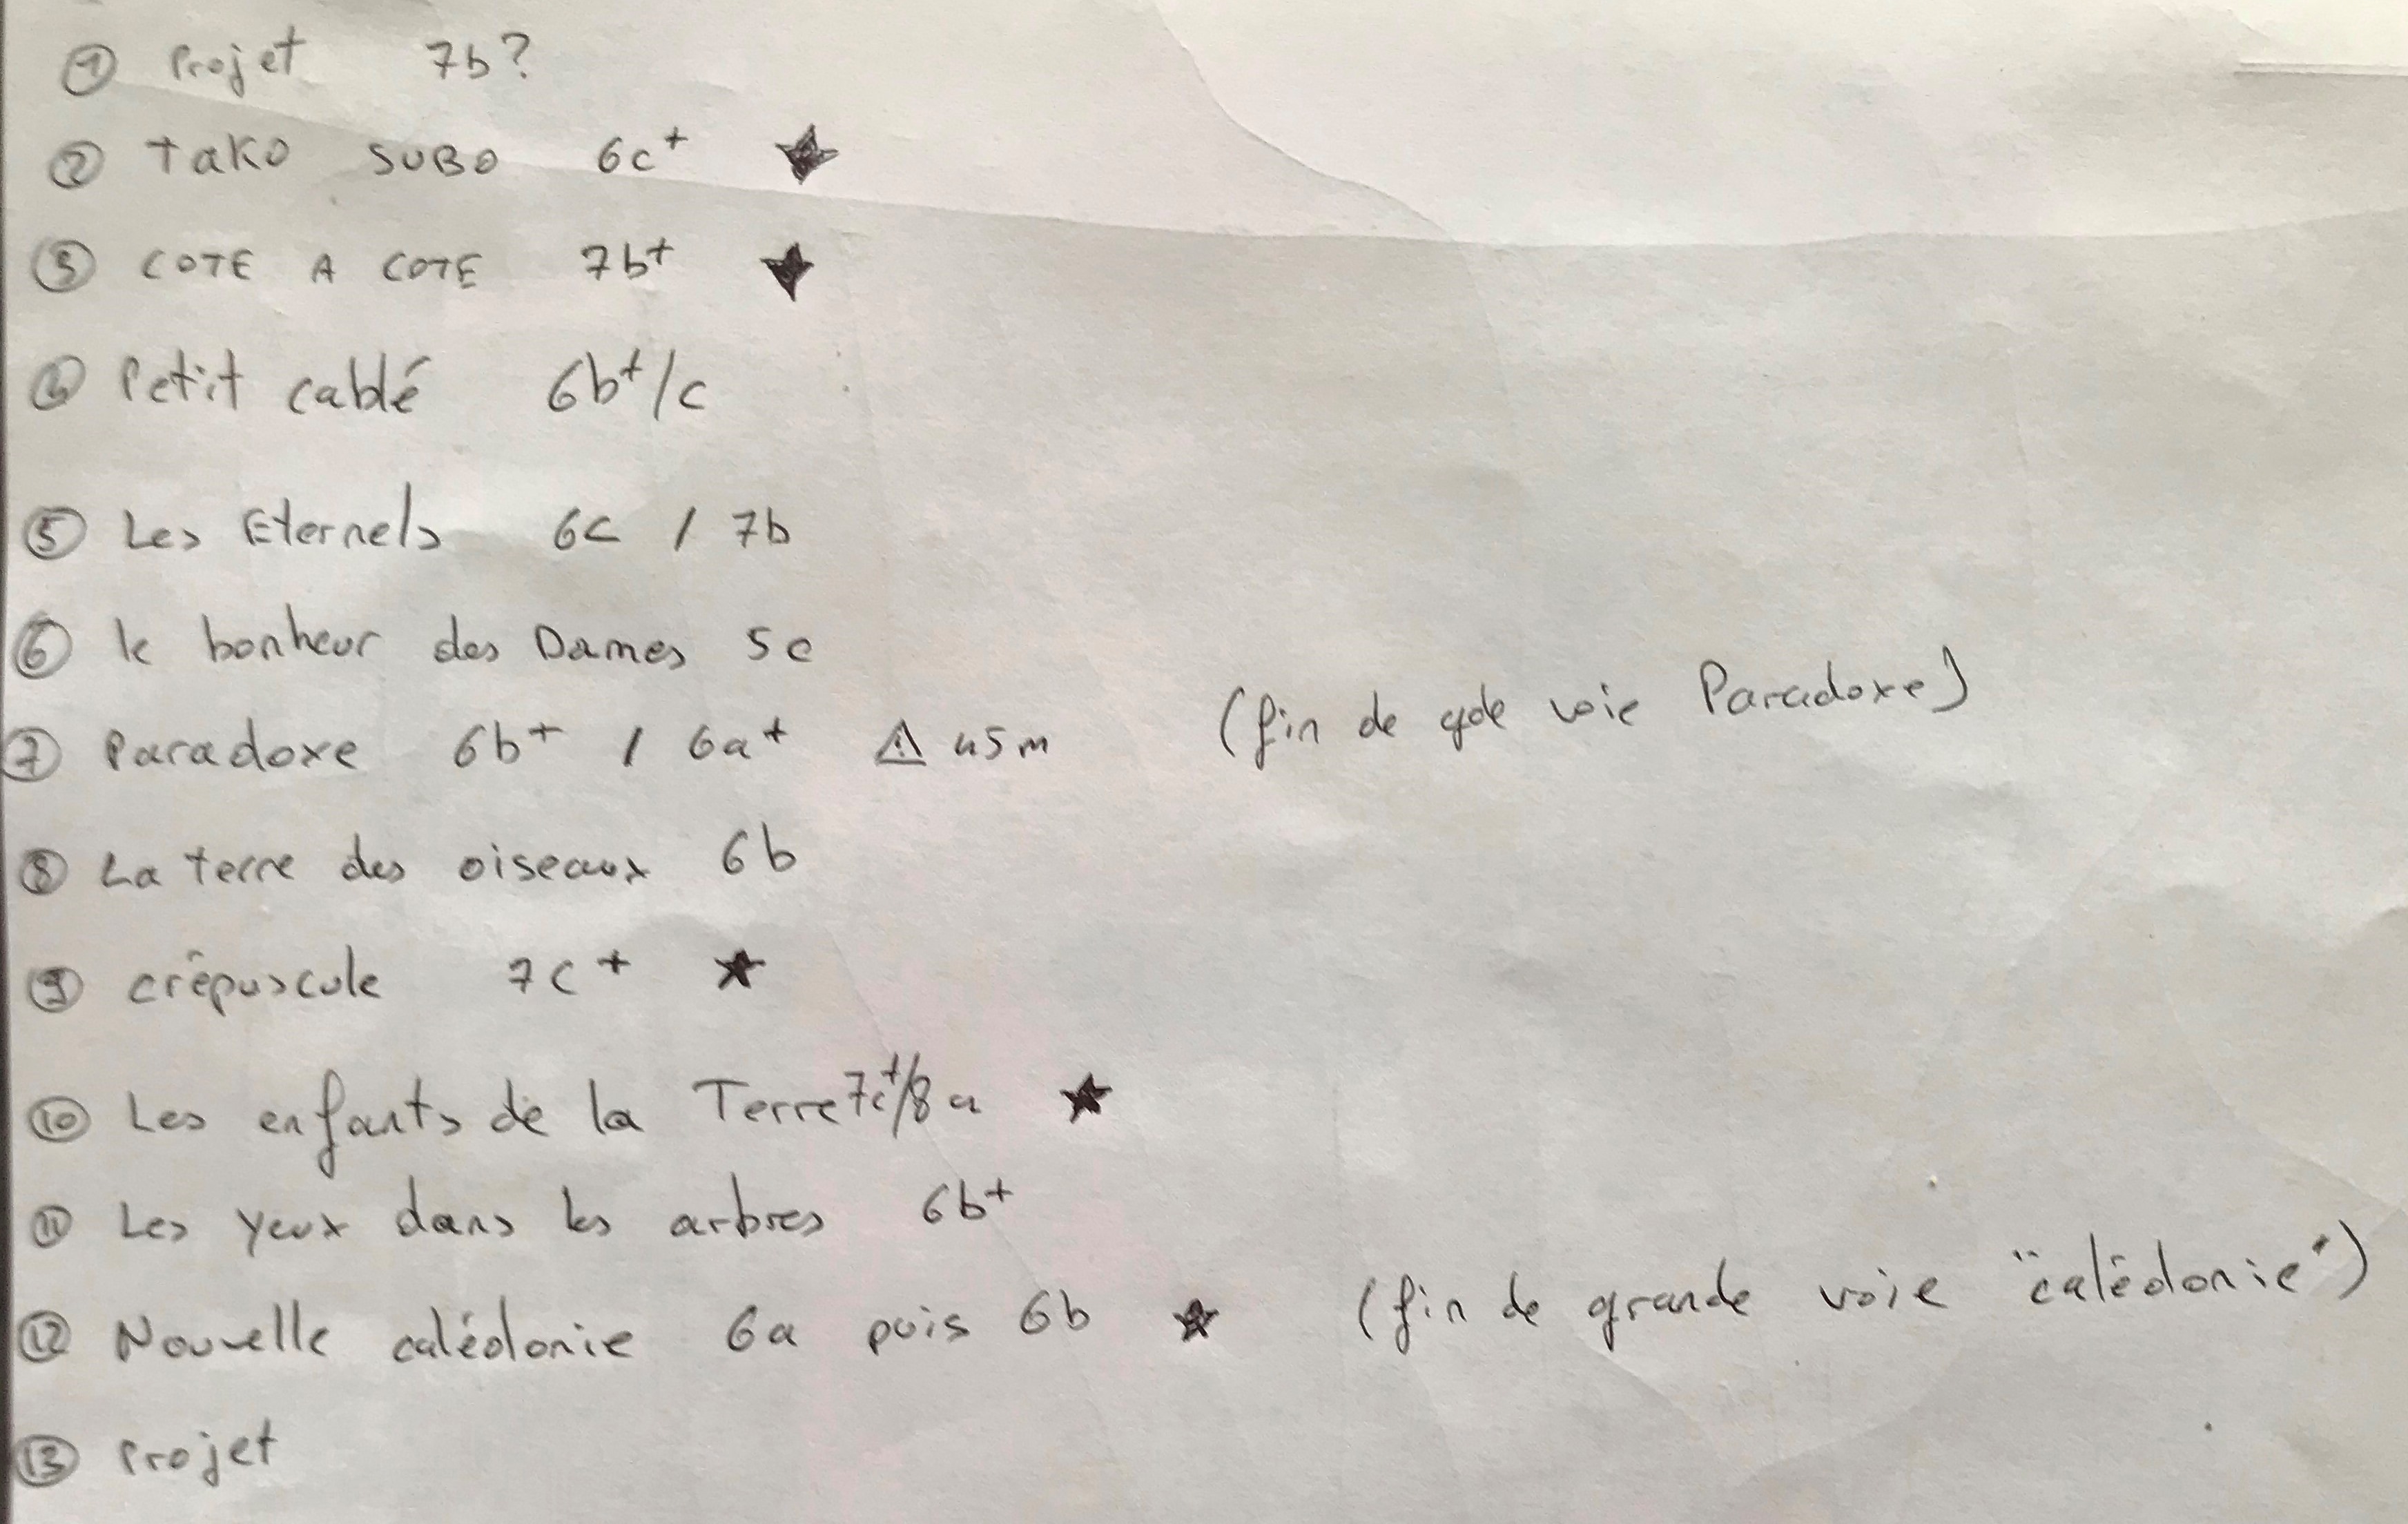 ① Projet 7b?
② Tako SUBO 6c+ ★
③ COTE A COTE 7b+ ★
④ Petit cablé 6b+/c
⑤ Les Eternels 6c / 7b
⑥ le bonheur des Dames 5c
⑦ Paradoxe 6b+ / 6a+ ⚠ 45m (fin de gde voie Paradoxe)
⑧ La terre des oiseaux 6b
⑨ crépuscule 7c+ ★
⑩ Les enfants de la Terre 7c+/8a ★
⑪ Les yeux dans les arbres 6b+
⑫ Nouvelle calédonie 6a puis 6b ★ (fin de grande voie "calédonie")
⑬ Projet